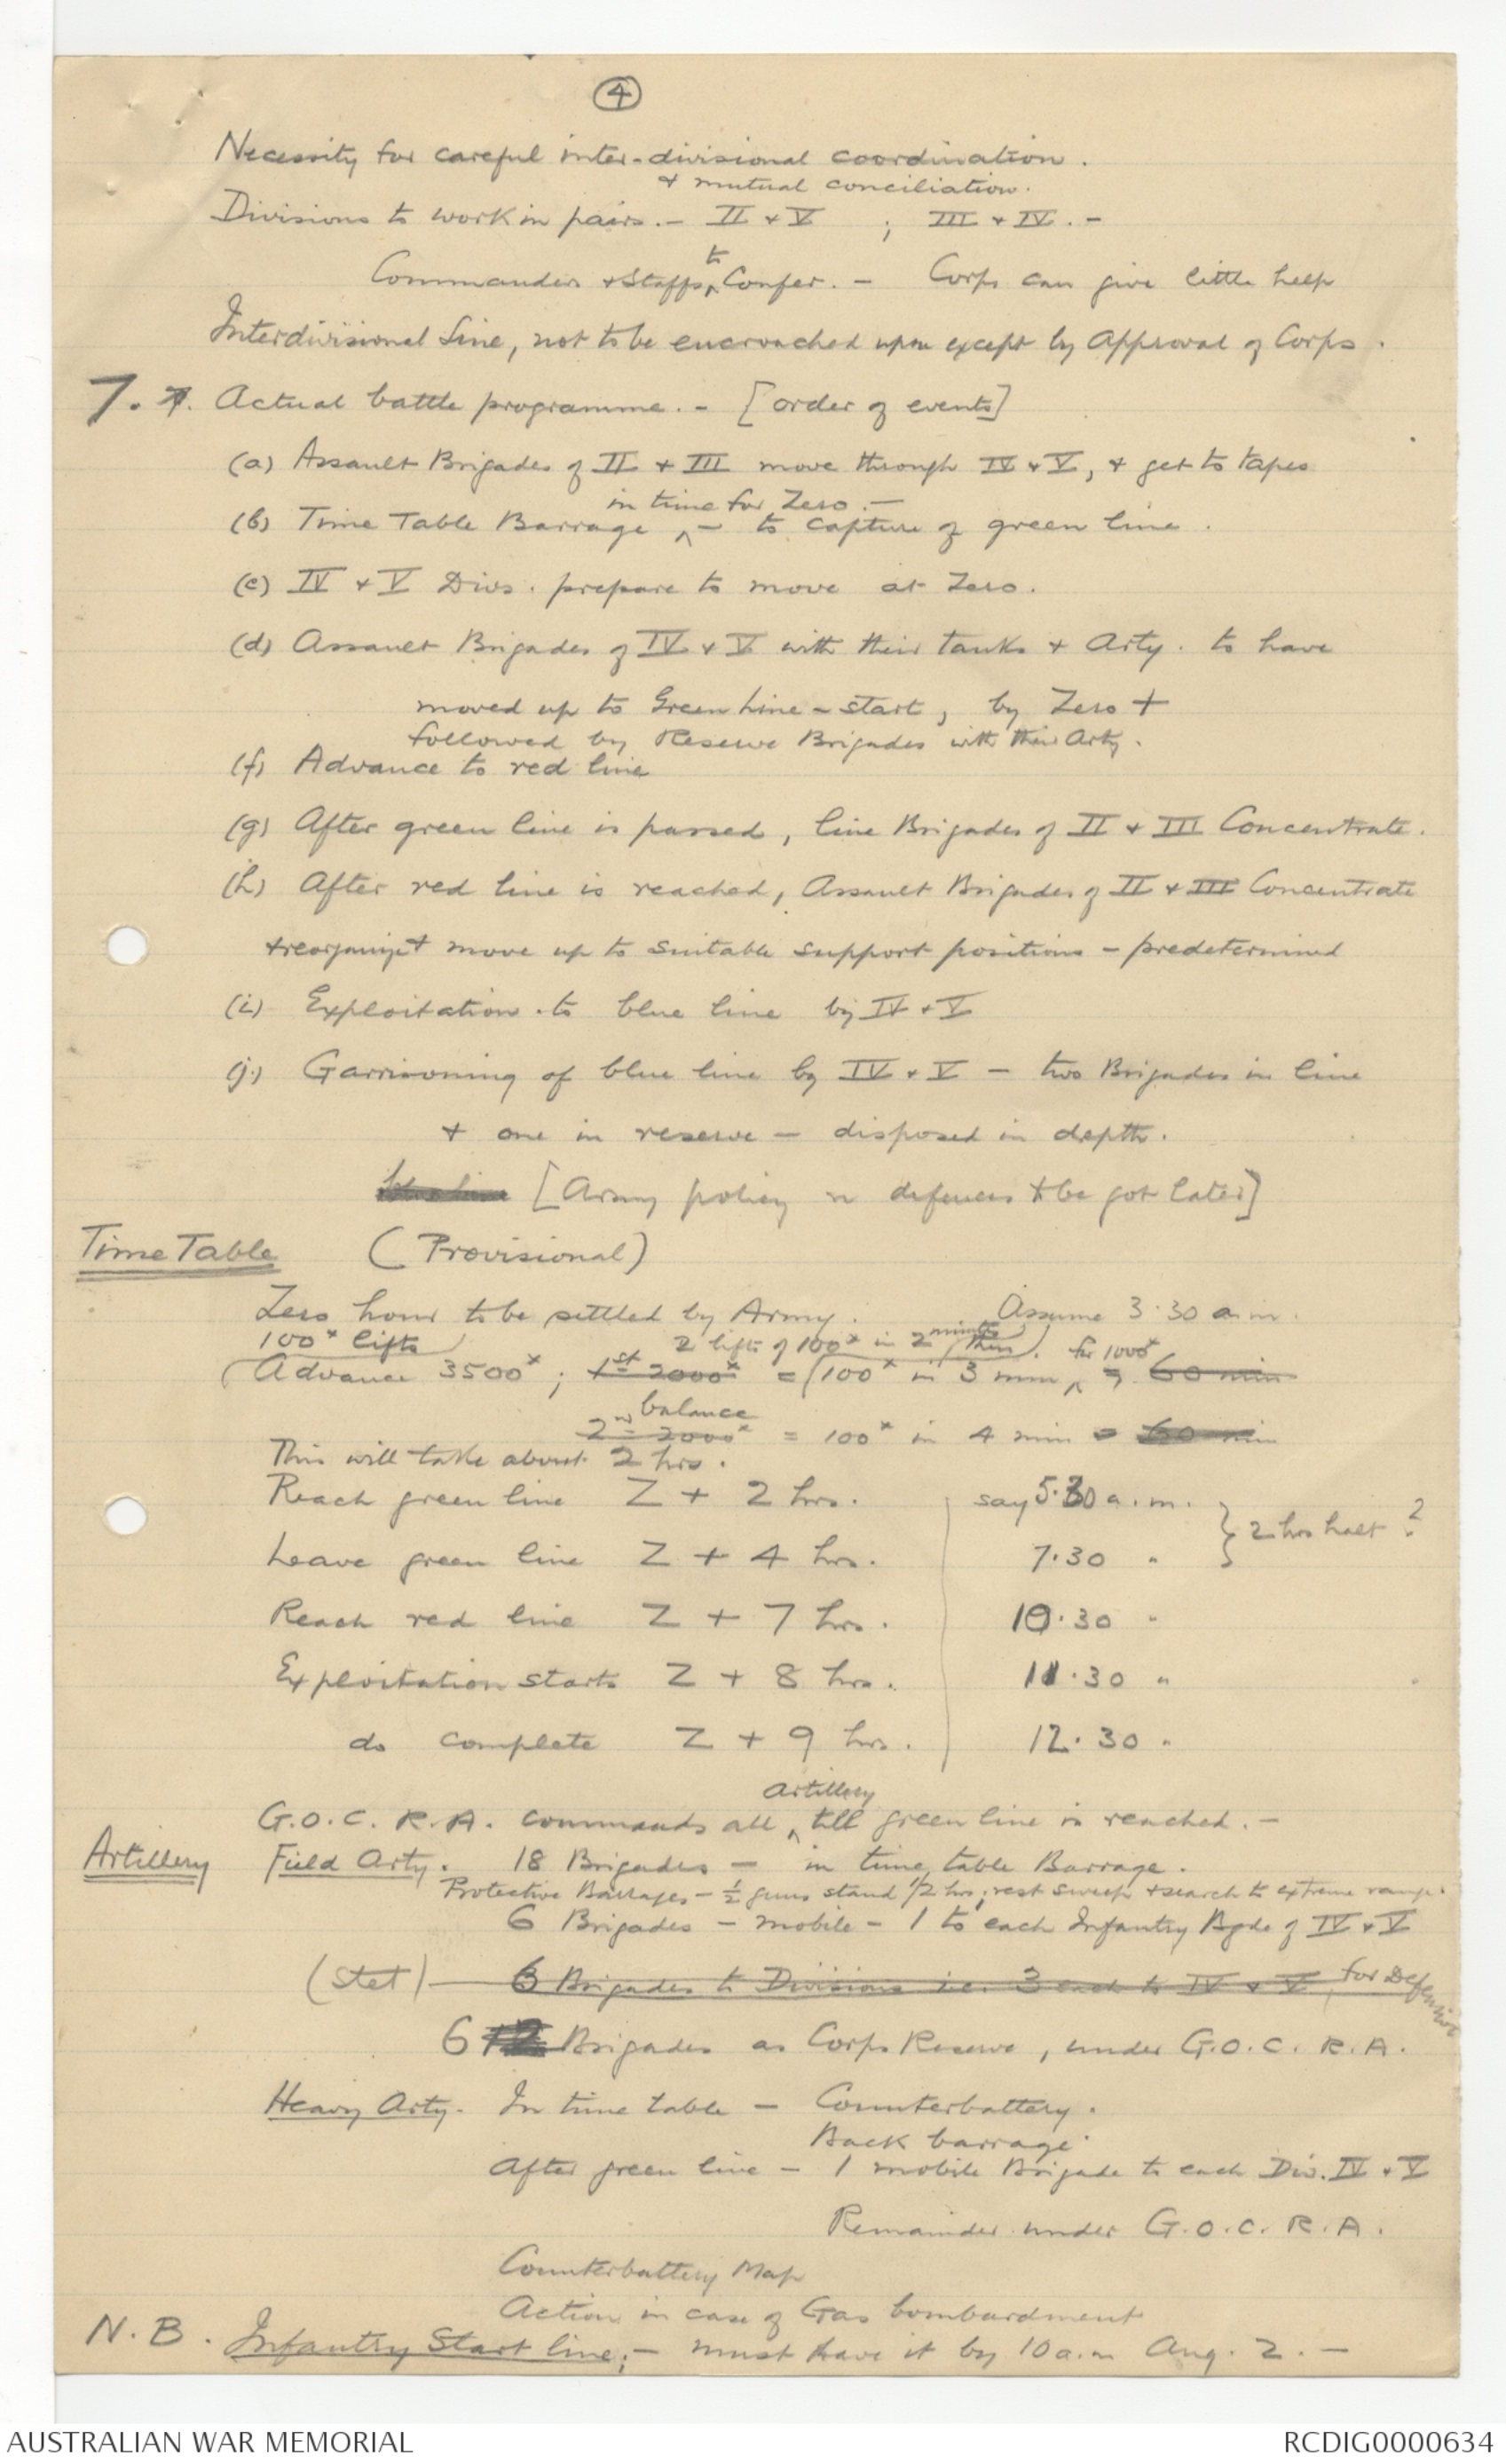 4
Necessity for careful inter-divisional coordination.
& mutual conciliation.
Divisions to work in pairs. - II & V ; III & IV. -
Commanders & Staffs to Confer. - Corps can give little help
Interdivisional Line, not to be encroached upon except by Approval of Corps.
7. 7. Actual battle programme. - [order of events]
(a) Assault Brigades of II & III move through IV & V, & get to tapes
in time for Zero. -
(b) Time Table Barrage ^ - to capture of green line.
(c) IV & V Divs. prepare to move at Zero.
(d) Assault Brigades of IV & V with their tanks & Arty. to have
moved up to Green Line - start, by Zero +
followed by Reserve Brigades with their Arty.
(f) Advance to red line
(g) After green line is passed, line Brigades of II & III Concentrate.
(h) After red line is reached, Assault Brigades of II & III Concentrate
& reorganize & move up to suitable support positions - predetermined
(i) Exploitation to blue line by IV & V
(j) Garrisoning of blue line by IV & V - two Brigades in line
& one in reserve - disposed in depth.
[Army policy on defences to be got later]
Time Table (Provisional)
Zero hour to be settled by Army. Assume 3.30 a.m.
100x lifts 2 lifts of 100x in 2 minutes, then for 1000x
Advance 3500x; 1st 2000x = (100x in 3 min ^ = 60 min
balance
2nd 2000x = 100x in 4 min = 60 min
This will take about 2 hrs.
Reach green line Z + 2 hrs. say 5.30 a.m.
2 hrs halt?
Leave green line Z + 4 hrs. 7.30 "
Reach red line Z + 7 hrs. 10.30 "
Exploitation starts Z + 8 hrs. 11.30 "
do complete Z + 9 hrs. 12.30 "
Artillery
G.O.C. R.A. commands all ^ till green line is reached. -
Artillery Field Arty. 18 Brigades - in time table Barrage.
Protective Barrages - ½ guns stand ½ hr; rest sweep & search to extreme range.
6 Brigades - mobile - 1 to each Infantry Bgde of IV & V
(stet) 6 Brigades to Divisions i.e. 3 each to IV & V, for Defensive
6 12 Brigades as Corps Reserve, under G.O.C. R.A.
Heavy Arty. In time table - Counterbattery.
Back barrage
After green line - 1 mobile Brigade to each Div. IV & V
Remainder under G.O.C. R.A.
Counterbattery Map
Action in case of Gas bombardment
N.B. Infantry Start line; - must have it by 10 a.m Aug. 2. -
AUSTRALIAN WAR MEMORIAL
RCDIG0000634